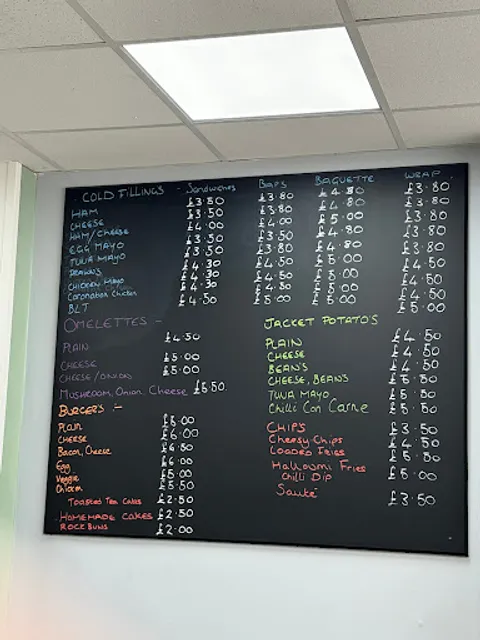 COLD FILLINGS - Sandwiches BAPS BAGUETTE WRAP
HAM £3.50 £3.80 £4.80 £3.80
CHEESE £3.50 £3.80 £4.80 £3.80
HAM/CHEESE £4.00 £4.00 £5.00 £3.80
EGG MAYO £3.50 £3.50 £4.80 £3.80
TUNA MAYO £3.50 £3.80 £4.80 £3.80
PRAWNS £4.30 £4.50 £5.00 £4.50
CHICKEN Mayo £4.30 £4.50 £5.00 £4.50
Coronation Chicken £4.30 £4.50 £5.00 £4.50
BLT £4.50 £5.00 £5.00 £5.00
OMELETTES -
PLAIN £4.50
CHEESE £5.00
CHEESE/ONIONS £5.00
MUSHROOM, Onion, Cheese £5.50
BURGER'S :-
Plain £5.00
CHEESE £6.00
Bacon, Cheese £6.50
Egg £6.00
Veggie £5.00
Chicken £5.50
Toasted Tea Cakes £2.50
HOMEMADE CAKES £2.50
ROCK BUNS £2.00
JACKET POTATO'S
PLAIN £4.50
CHEESE £4.50
BEAN'S £4.50
CHEESE, BEAN'S £5.50
TUNA MAYO £5.50
Chilli Con Carne £5.50
CHIPS £3.50
Cheesy Chips £4.50
LOADED FRIES £5.80
Halloumi Fries
Chilli Dip £5.00
Sauté £3.50